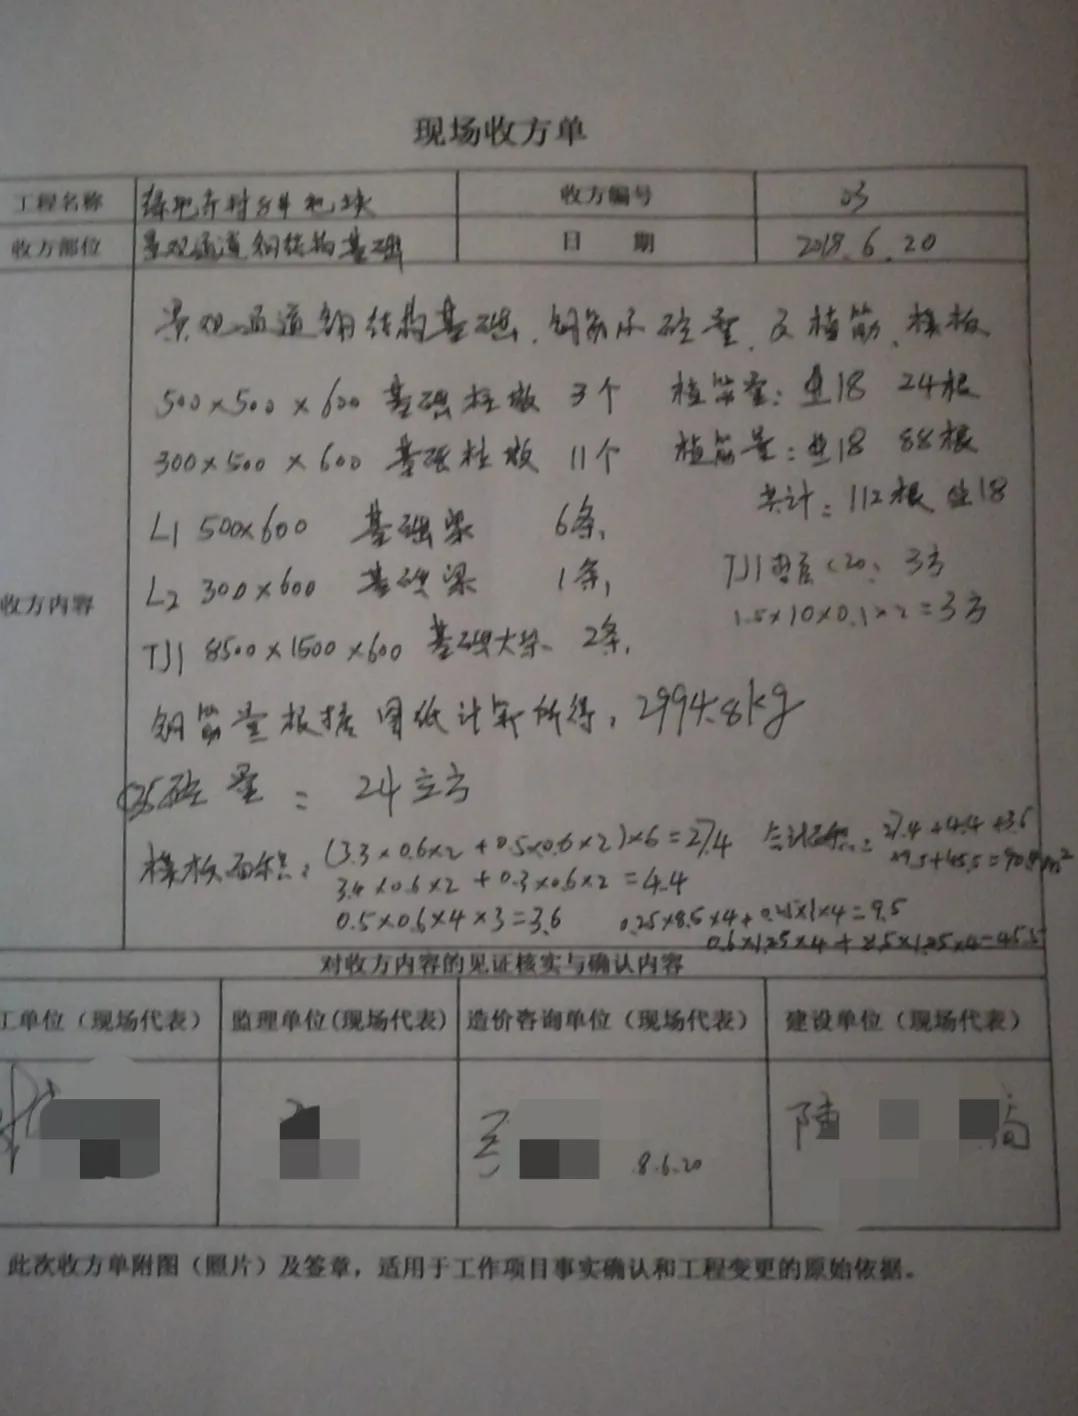 现场收方单
工程名称 绿地 地块 收方编号 03
收方部位 景观通道钢结构基础 日 期 2018.6.20
收方内容
景观通道钢结构基础、钢筋 砼量、及植筋、模板
500×500×600 基础柱墩 3个 植筋量: 18 24根
300×500×600 基础柱墩 11个 植筋量: 18 88根
共计: 112根 18
L1 500×600 基础梁 6条,
L2 300×600 基础梁 1条, TJ1 C20: 3方
1.5×10×0.1×2=3方
TJ1 8500×1500×600 基础大梁 2条,
钢筋量根据图纸计算所得, 2994.8kg
C35砼量 = 24立方
模板面积: (3.3×0.6×2+0.5×0.6×2)×6=27.4 27.4+4.4+3.6
3.4×0.6×2+0.3×0.6×2=4.4
0.5×0.6×4×3=3.6 0.25×8.5×4+0.25×1×4=9.5
0.6×1.25×4+8.5×1.25×4=45.5
对收方内容的见证核实与确认内容
工单位（现场代表） 监理单位(现场代表) 造价咨询单位（现场代表） 建设单位（现场代表）
8.6.20 陆
此次收方单附图（照片）及签章，适用于工作项目事实确认和工程变更的原始依据。